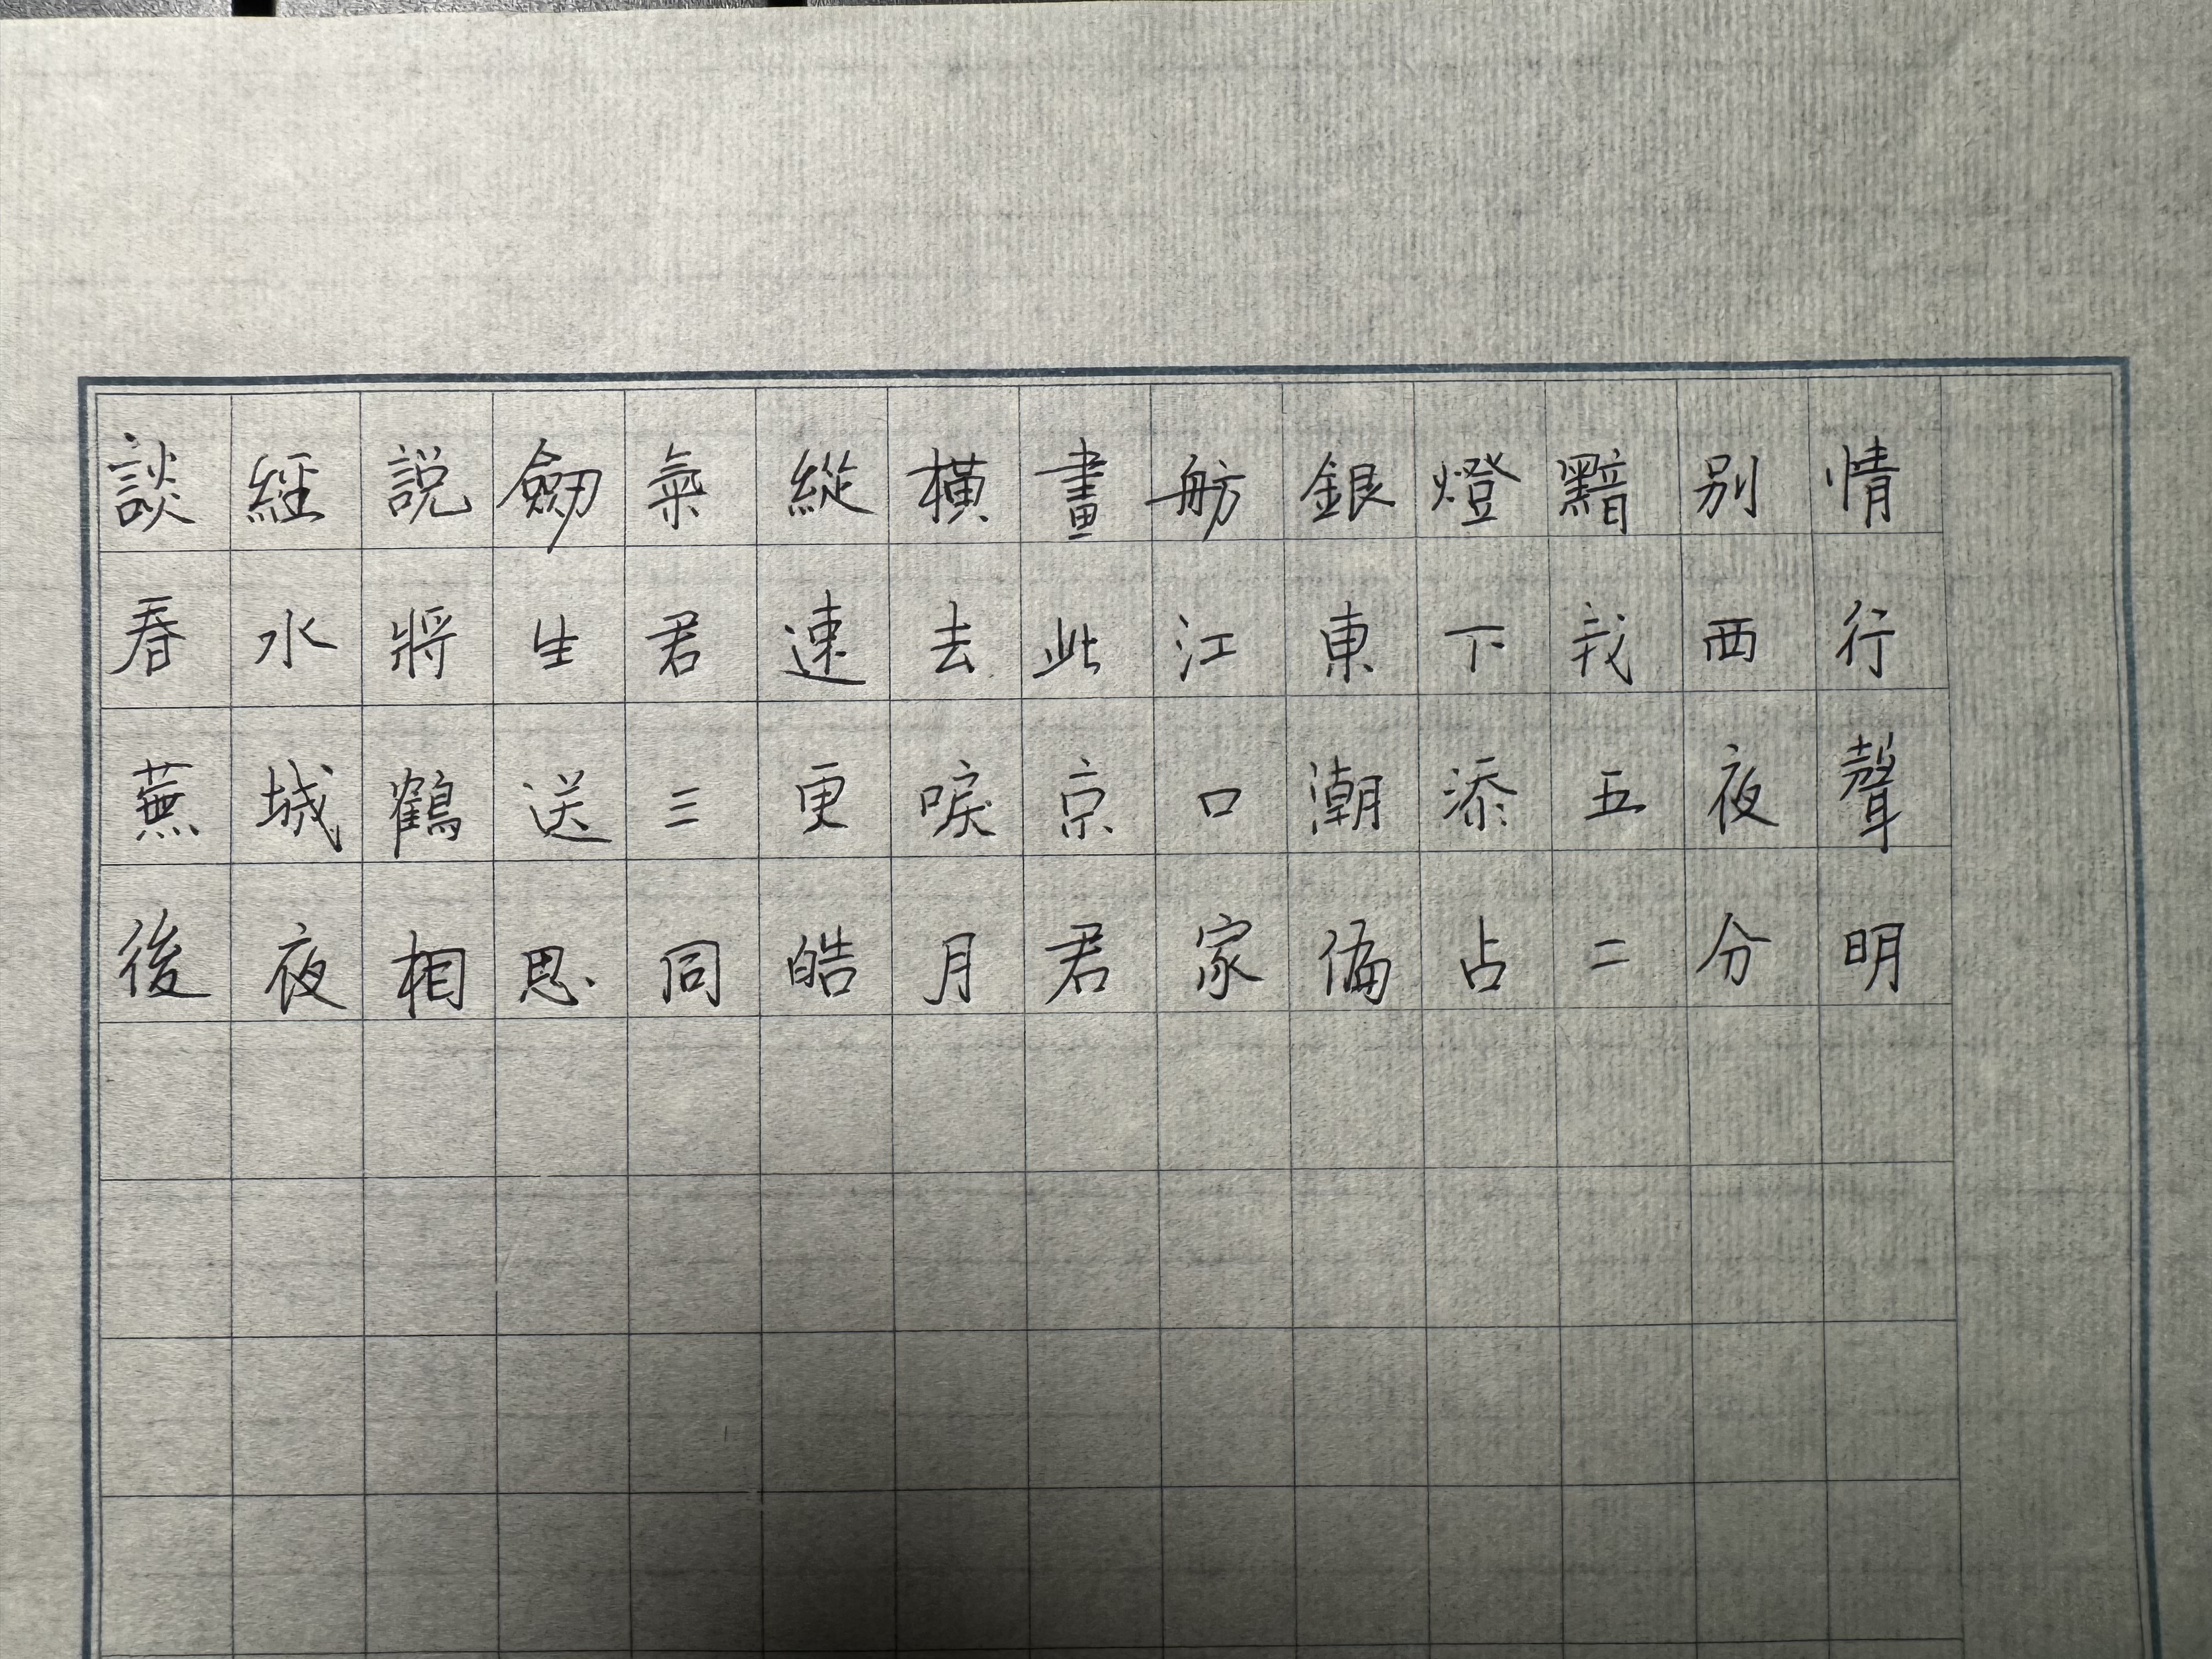 談經説劒氣縱橫畫舫銀燈黯别情
春水將生君速去此江東下我西行
蕪城鶴送三更唳京口潮添五夜聲
後夜相思同皓月君家偏占二分明